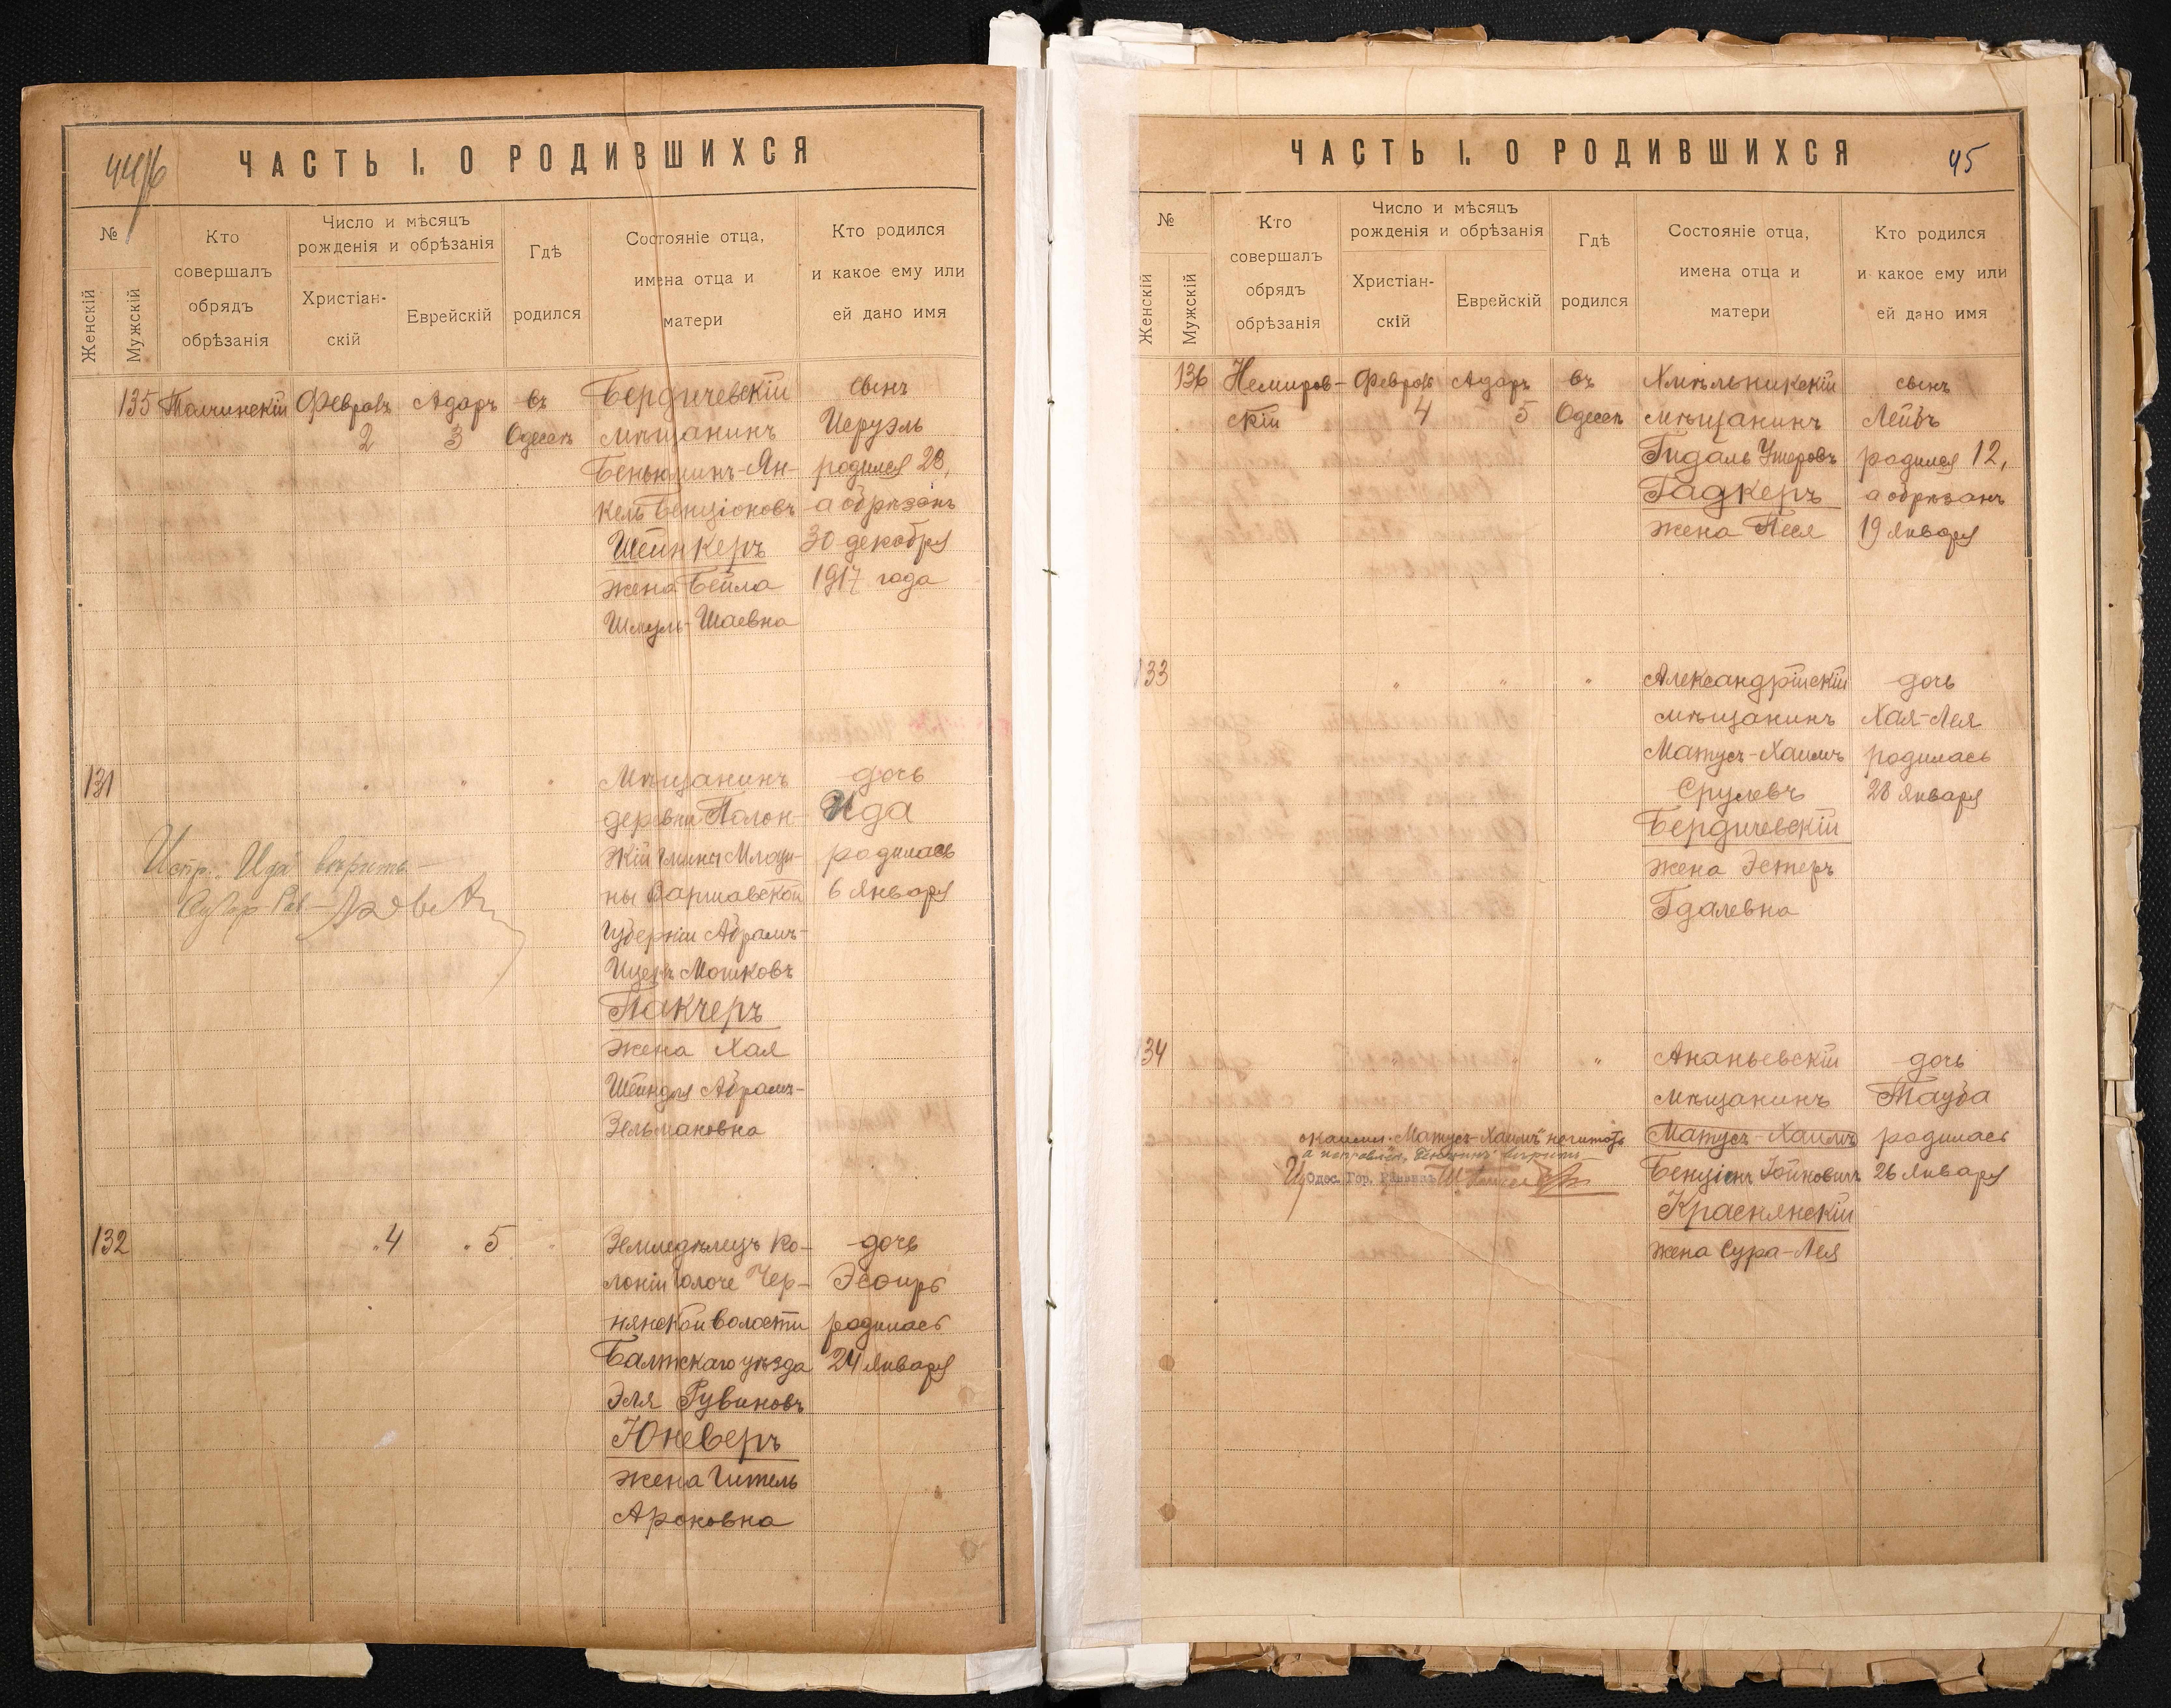 44/6
ЧАСТЬ I. О РОДИВШИХСЯ
№
Женскій
Мужскій
Кто
совершалъ
обрядъ
обрѣзанія
Число и мѣсяцъ
рожденія и обрѣзанія
Христіан-
скій
Еврейскій
Гдѣ
родился
Состояніе отца,
имена отца и
матери
Кто родился
и какое ему или
ей дано имя
135
Толчинскій
Февраль
2
Адаръ
3
въ
Одессѣ
Бердичевскій
мѣщанинъ
Беньюминъ-Ян-
кель Бенціоновъ
Шейнкеръ
жена Бейла
Шмуль-Шаевна
сынъ
Иеруэль
родился 23,
а обрѣзанъ
30 декабря
1917 года
131
" " "
Мѣщанинъ
деревни Полон-
жій гмины Млоци-
ны Варшавской
губерніи Абрамъ-
Ицекъ Мошковъ
Пакчеръ
жена Хая
Шейндля Абрамъ-
Зельмановна
дочь
Ида
родилась
6 января
Испр. "Ида" вѣрить
132
" 4
" 5
"
Земледѣлецъ ко-
лоніи Голоче Чер-
нянской волости
Балтскаго уѣзда
Эля Рувиновъ
Юневеръ
жена Гитель
Ароновна
дочь
Эсѳирь
родилась
24 января
ЧАСТЬ I. О РОДИВШИХСЯ
45
№
Женскій
Мужскій
Кто
совершалъ
обрядъ
обрѣзанія
Число и мѣсяцъ
рожденія и обрѣзанія
Христіан-
скій
Еврейскій
Гдѣ
родился
Состояніе отца,
имена отца и
матери
Кто родился
и какое ему или
ей дано имя
136
Немиров-
скій
Февраль
4
Адаръ
5
въ
Одессѣ
Хмѣльникскій
мѣщанинъ
Гидаль Ушеровъ
Гадкеръ
жена Песя
сынъ
Лейбъ
родился 12,
а обрѣзанъ
19 января
133
" " "
Александрійскій
мѣщанинъ
Матусъ-Хаимъ
Срулевъ
Бердичевскій
жена Эстеръ
Гдалевна
дочь
Хая-Лея
родилась
28 января
134
" " "
Ананьевскій
мѣщанинъ
Матусъ-Хаимъ
Бенціонъ Іойновичъ
Краснянскій
жена Сура-Лея
дочь
Тауба
родилась
26 января
"Матусъ-Хаимъ" не читать
Одес. Гор. Раввинъ